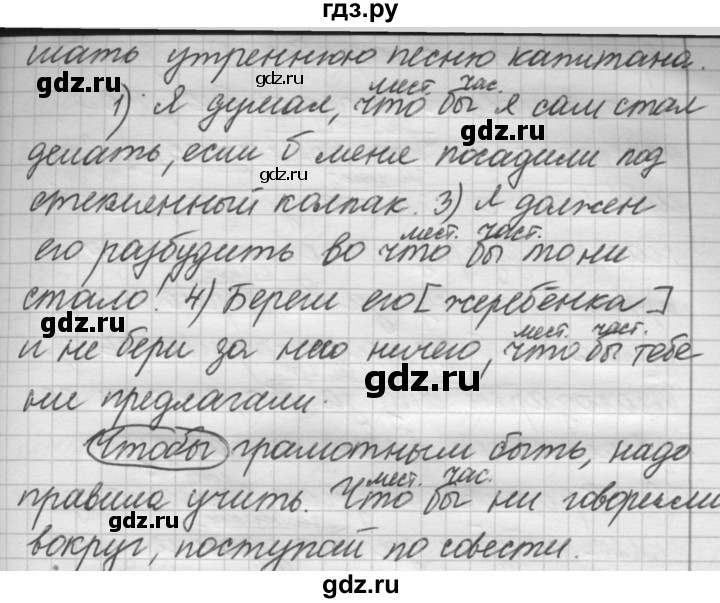 гдз.ру
шать утреннюю песню капитана.
gdz.ru
gdz.ru
мест. час.
1) Я думал, что бы я сам стал
gdz.ru
делать, если б меня посадили под
gdz.ru
стеклянный колпак. 3) Я должен
мест. част.
его разбудить во что бы то ни
стало! 4) Береги его [жеребёнка]
gdz.ru
gdz.ru
мест. част.
и не бери за него ничего, что бы тебе
gdz.ru
ни предлагали.
Чтобы грамотным быть, надо
мест. час.
правила учить. Что бы ни говорили
gdz.ru
gdz.ru
вокруг, поступай по совести.
gdz.ru